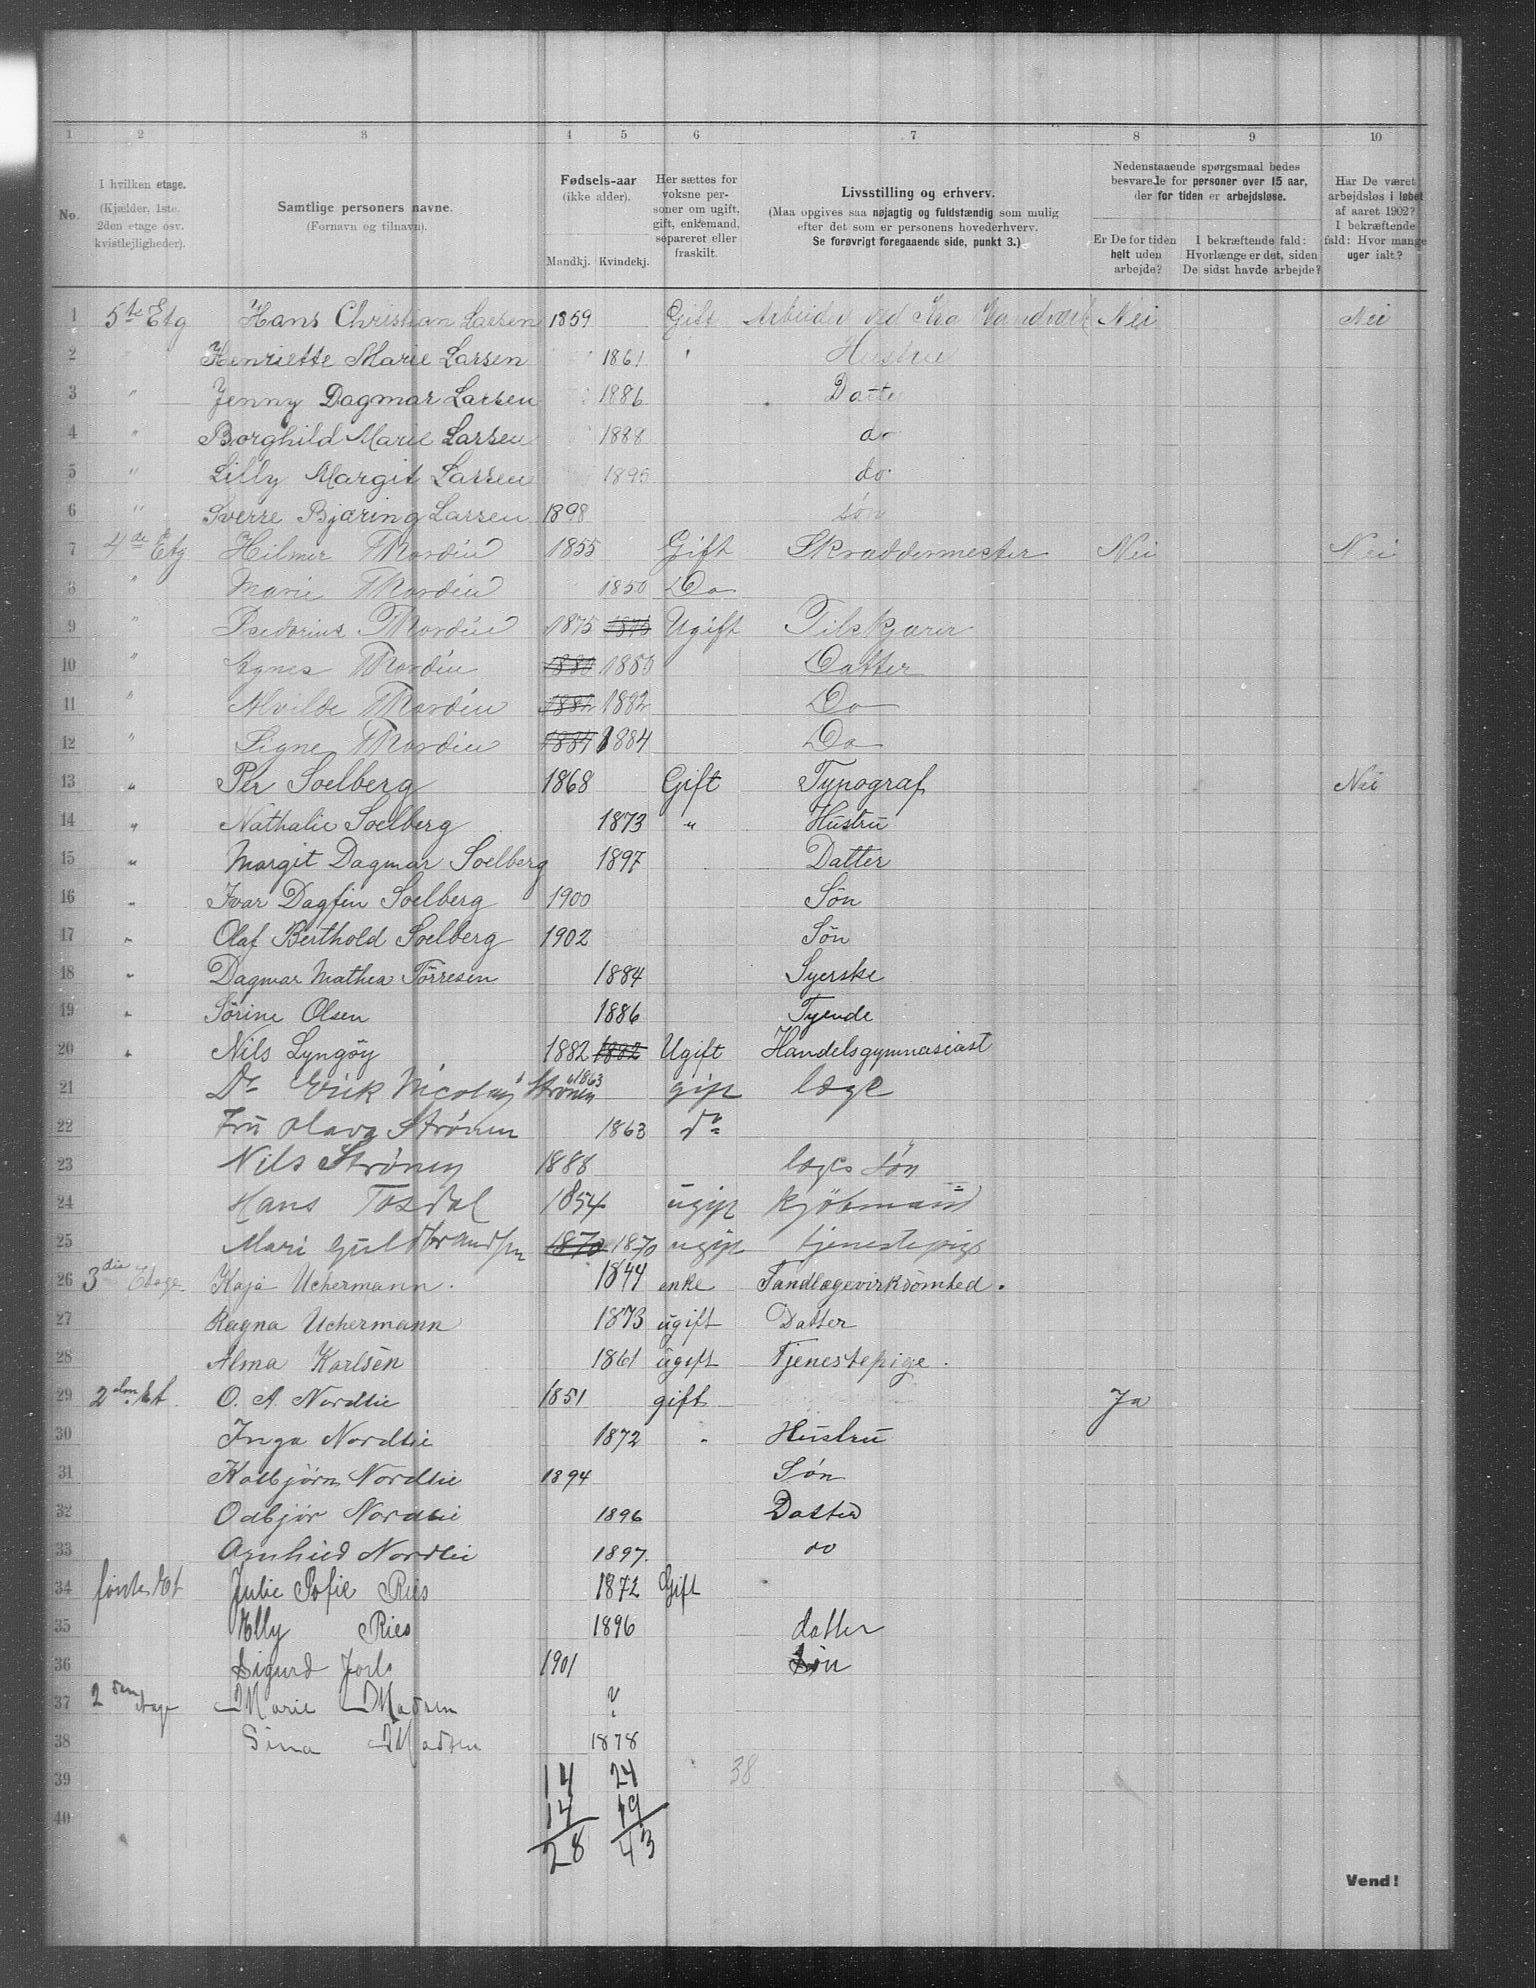 1 2 3 4 5 6 7 8 9 10
No.
I hvilken etage.
(Kjælder, 1ste.
2den etage osv.
kvistlejligheder).
Samtlige personers navne.
(Fornavn og tilnavn).
Fødsels-aar
(ikke alder).
Mandkj. Kvindekj.
Her sættes for
voksne per-
soner om ugift,
gift, enkemand,
separeret eller
fraskilt.
Livsstilling og erhverv.
(Maa opgives saa nøjagtig og fuldstændig som mulig
efter det som er personens hovederhverv.
Se forøvrigt foregaaende side, punkt 3.)
Nedenstaaende spørgsmaal bedes
besvarede for personer over 15 aar,
der for tiden er arbejdsløse.
Er De for tiden
helt uden
arbejde?
I bekræftende fald:
Hvorlænge er det, siden
De sidst havde arbejde?
Har De været
arbejdsløs i løbet
af aaret 1902?
I bekræftende
fald: Hvor mange
uger ialt?
1 5te Etg Hans Christian Larsen 1859 Gift Arbeider ved Nei Nei
2 Henriette Marie Larsen 1861 " Hustru
3 " Jenny Dagmar Larsen 1886 Datter
4 " Borghild Marie Larsen 1888 do
5 " Lilly Margit Larsen 1895 do
6 " Sverre Bjæring Larsen 1898 søn
7 4de Etg Hilmer Thordin 1855 Gift Skræddermester Nei Nei
8 " Marie Thordin 1850 Do
9 " Thordin 1875 1875 Ugift
10 " Agnes Thordin 1880 1880 Datter
11 " Alvilde Thordin 1882 1882 Do
12 " Signe Thordin 1884 1884 Do
13 " Per Soelberg 1868 Gift Typograf Nei
14 " Nathalie Soelberg 1873 " Hustru
15 " Margit Dagmar Soelberg 1897 Datter
16 " Ivar Dagfin Soelberg 1900 Søn
17 " Olaf Berthold Soelberg 1902 Søn
18 " Dagmar Mathea Törresen 1884 Syerske
19 " Sörine Olsen 1886 Tyende
20 " Nils Lyngöy 1882 1882 Ugift Handelsgymnasiast
21 Dr Erik Nicolay Strønen 1863 gift læge
22 Fru Olava Strønen 1863 do
23 Nils Strønen 1888 læges søn
24 Hans Tosdal 1854 ugift kjøbmand
25 Mari Guldbrandsen 1870 1870 ugift tjenestepige
26 3die Etage Kaja Uchermann. 1844 enke Tandlægevirksomhed.
27 Ragna Uchermann 1873 ugift Datter
28 Alma Karlsen 1861 ugift Tjenestepige.
29 2den Et O. A. Nordlie 1851 gift Ja
30 Inga Nordlie 1872 " Hustru
31 Kolbjörn Nordlie 1894 Søn
32 Odbjör Nordlie 1896 Datter
33 Arnhild Nordlie 1897. do
34 første Et Julie Sofie Ries 1872 Gift
35 Elly Ries 1896 datter
36 Sigurd 1901 Søn
37 2den Etage Marie Madsen ?
38 Sina Madsen 1878
39 14 24 38
40 14 19
28 43
Vend!